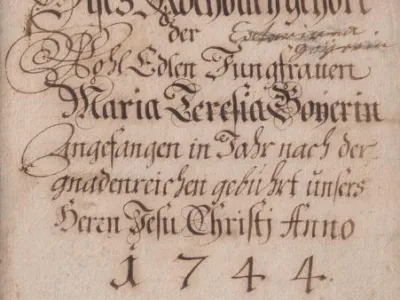 Dises Kochbuch gehört
der Catharina
Boyerin
Wohl Edlen Jungfrauen
Maria Teresia Boyerin
Angefangen in Jahr nach der
gnadenreichen gebührt unsers
Herrn Jesu Christj Anno
1744.